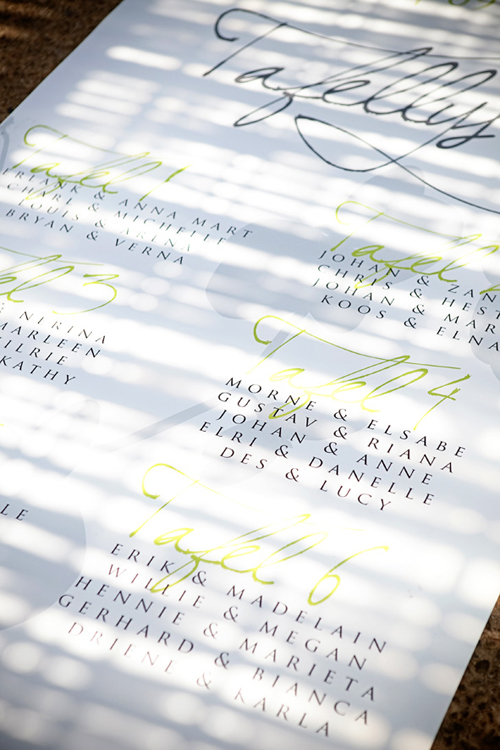 Tafellys
Tafel 1
FRANK & ANNA MART
CHARL & MICHELLE
LOUIS & ARINA
BRYAN & VERNA
Tafel
JOHAN & ZAN
CHRIS & HEST
JOHAN & MAR
KOOS & ELNA
3
& NIRINA
MARLEEN
KATHY
Tafel 4
MORNE & ELSABE
GUSTAV & RIANA
JOHAN & ANNE
ELRI & DANELLE
DES & LUCY
Tafel 6
ERIK & MADELAIN
WILLIE & MEGAN
HENNIE & MARIETA
GERHARD & BIANCA
& KARLA